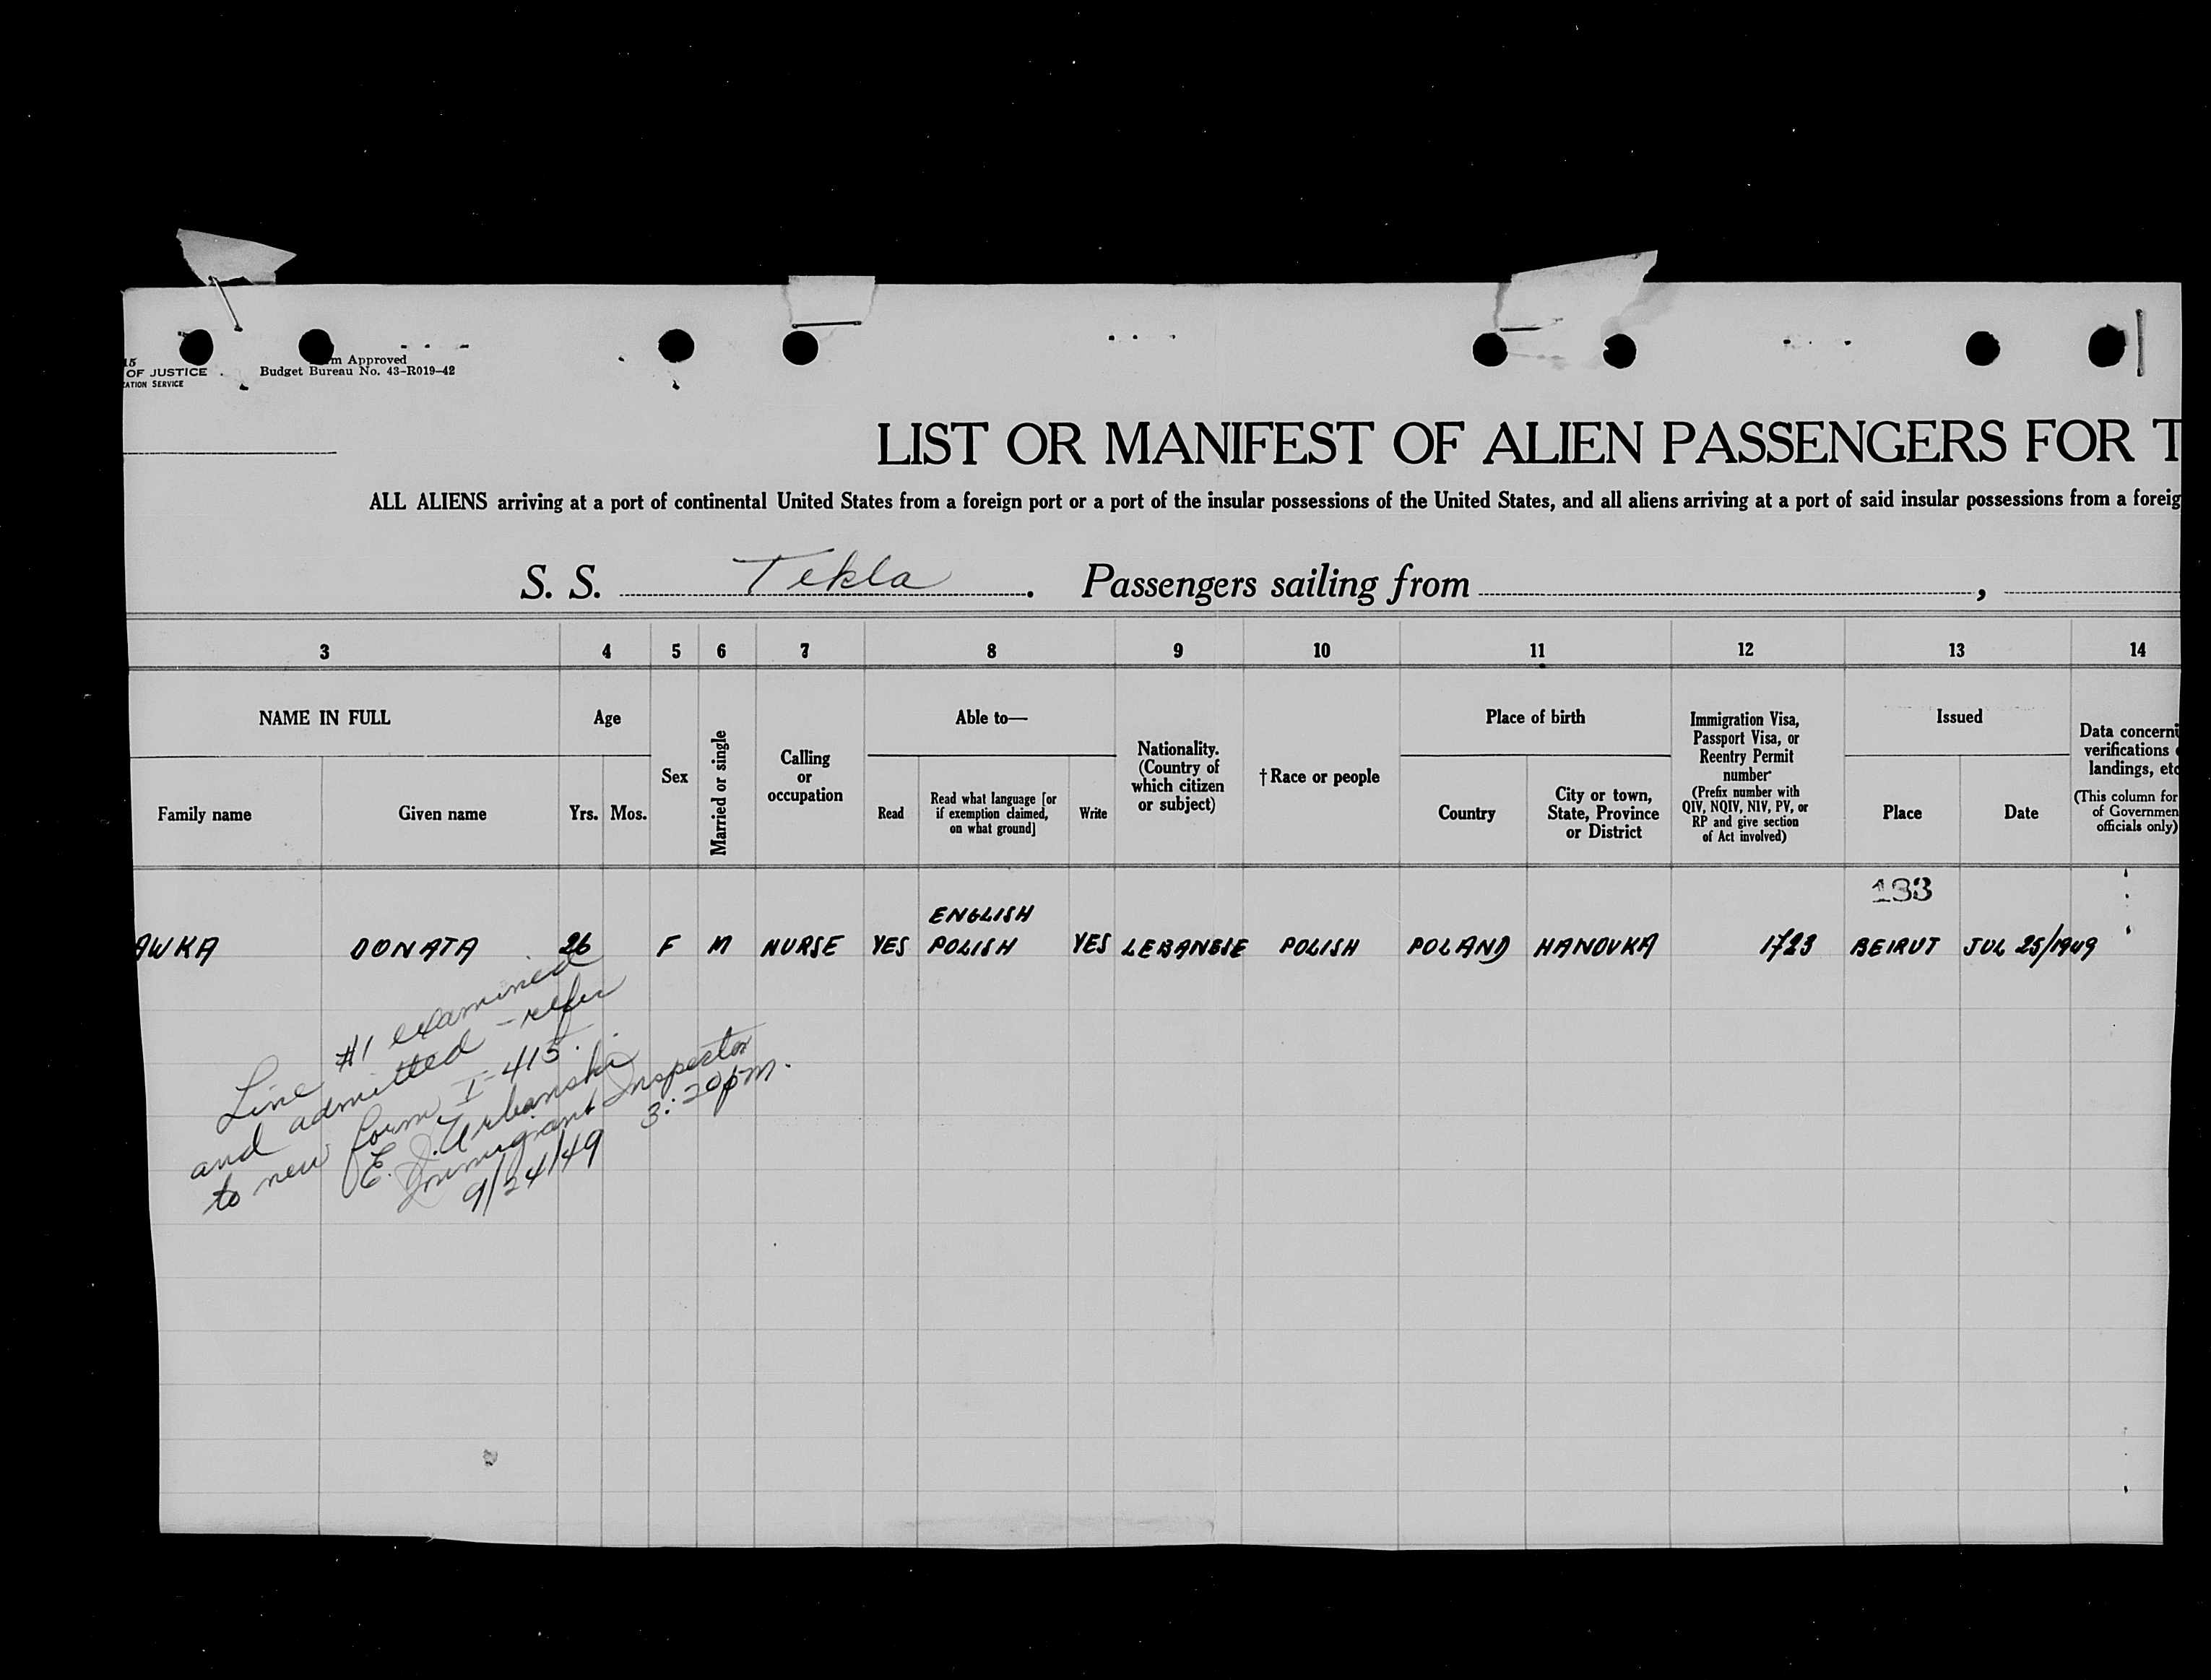 15
OF JUSTICE
ZATION SERVICE
m Approved
Budget Bureau No. 43-R019-42
LIST OR MANIFEST OF ALIEN PASSENGERS FOR T
ALL ALIENS arriving at a port of continental United States from a foreign port or a port of the insular possessions of the United States, and all aliens arriving at a port of said insular possessions from a foreig
S. S. Tekla. Passengers sailing from ,
3 4 5 6 7 8 9 10 11 12 13 14
NAME IN FULL
Family name
Given name
Age
Yrs. Mos.
Sex
Married or single
Calling
or
occupation
Able to—
Read
Read what language [or
if exemption claimed,
on what ground]
Write
Nationality.
(Country of
which citizen
or subject)
†Race or people
Place of birth
Country
City or town,
State, Province
or District
Immigration Visa,
Passport Visa, or
Reentry Permit
number
(Prefix number with
QIV, NQIV, NIV, PV, or
RP and give section
of Act involved)
Issued
Place
Date
Data concerni
verifications
landings, etc
(This column for
of Governmen
officials only)
133
ENGLISH
AWKA DONATA 26 F M NURSE YES POLISH YES LEBANESE POLISH POLAND HANOVKA 1723 BEIRUT JUL 25/1949
Line #1 examined
and admitted - refer
to new form I-415.
E. J. Urbanski
Immigrant Inspector
9/24/49 3:20pm.